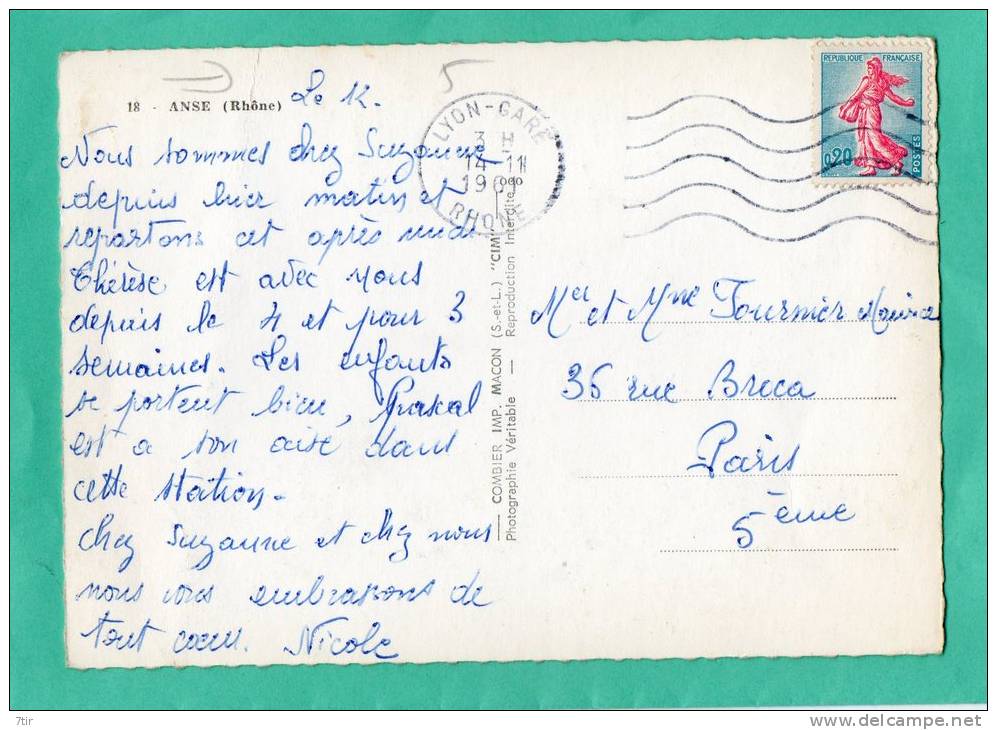 18 - ANSE (Rhône)
Le 12.
Nous sommes chez Suzanne
depuis hier matin et
repartons cet après midi
Thérèse est avec nous
depuis le 4 et pour 3
semaines. Les enfants
se portent bien, Pascal
est a son aise dans
cette station.
Chez Suzanne et chez nous
nous vous embrassons de
tout cœur. Nicole
5
LYON-GARE
3 H
14-11
RHONE
REPUBLIQUE FRANÇAISE
0,20
POSTES
COMBIER IMP. MACON (S.-et-L.) "CIM"
Photographie Véritable — Reproduction Interdite
Mer et Mme Fournier Maurice
36 rue Broca
Paris
5ème
7tir
www.delcampe.net